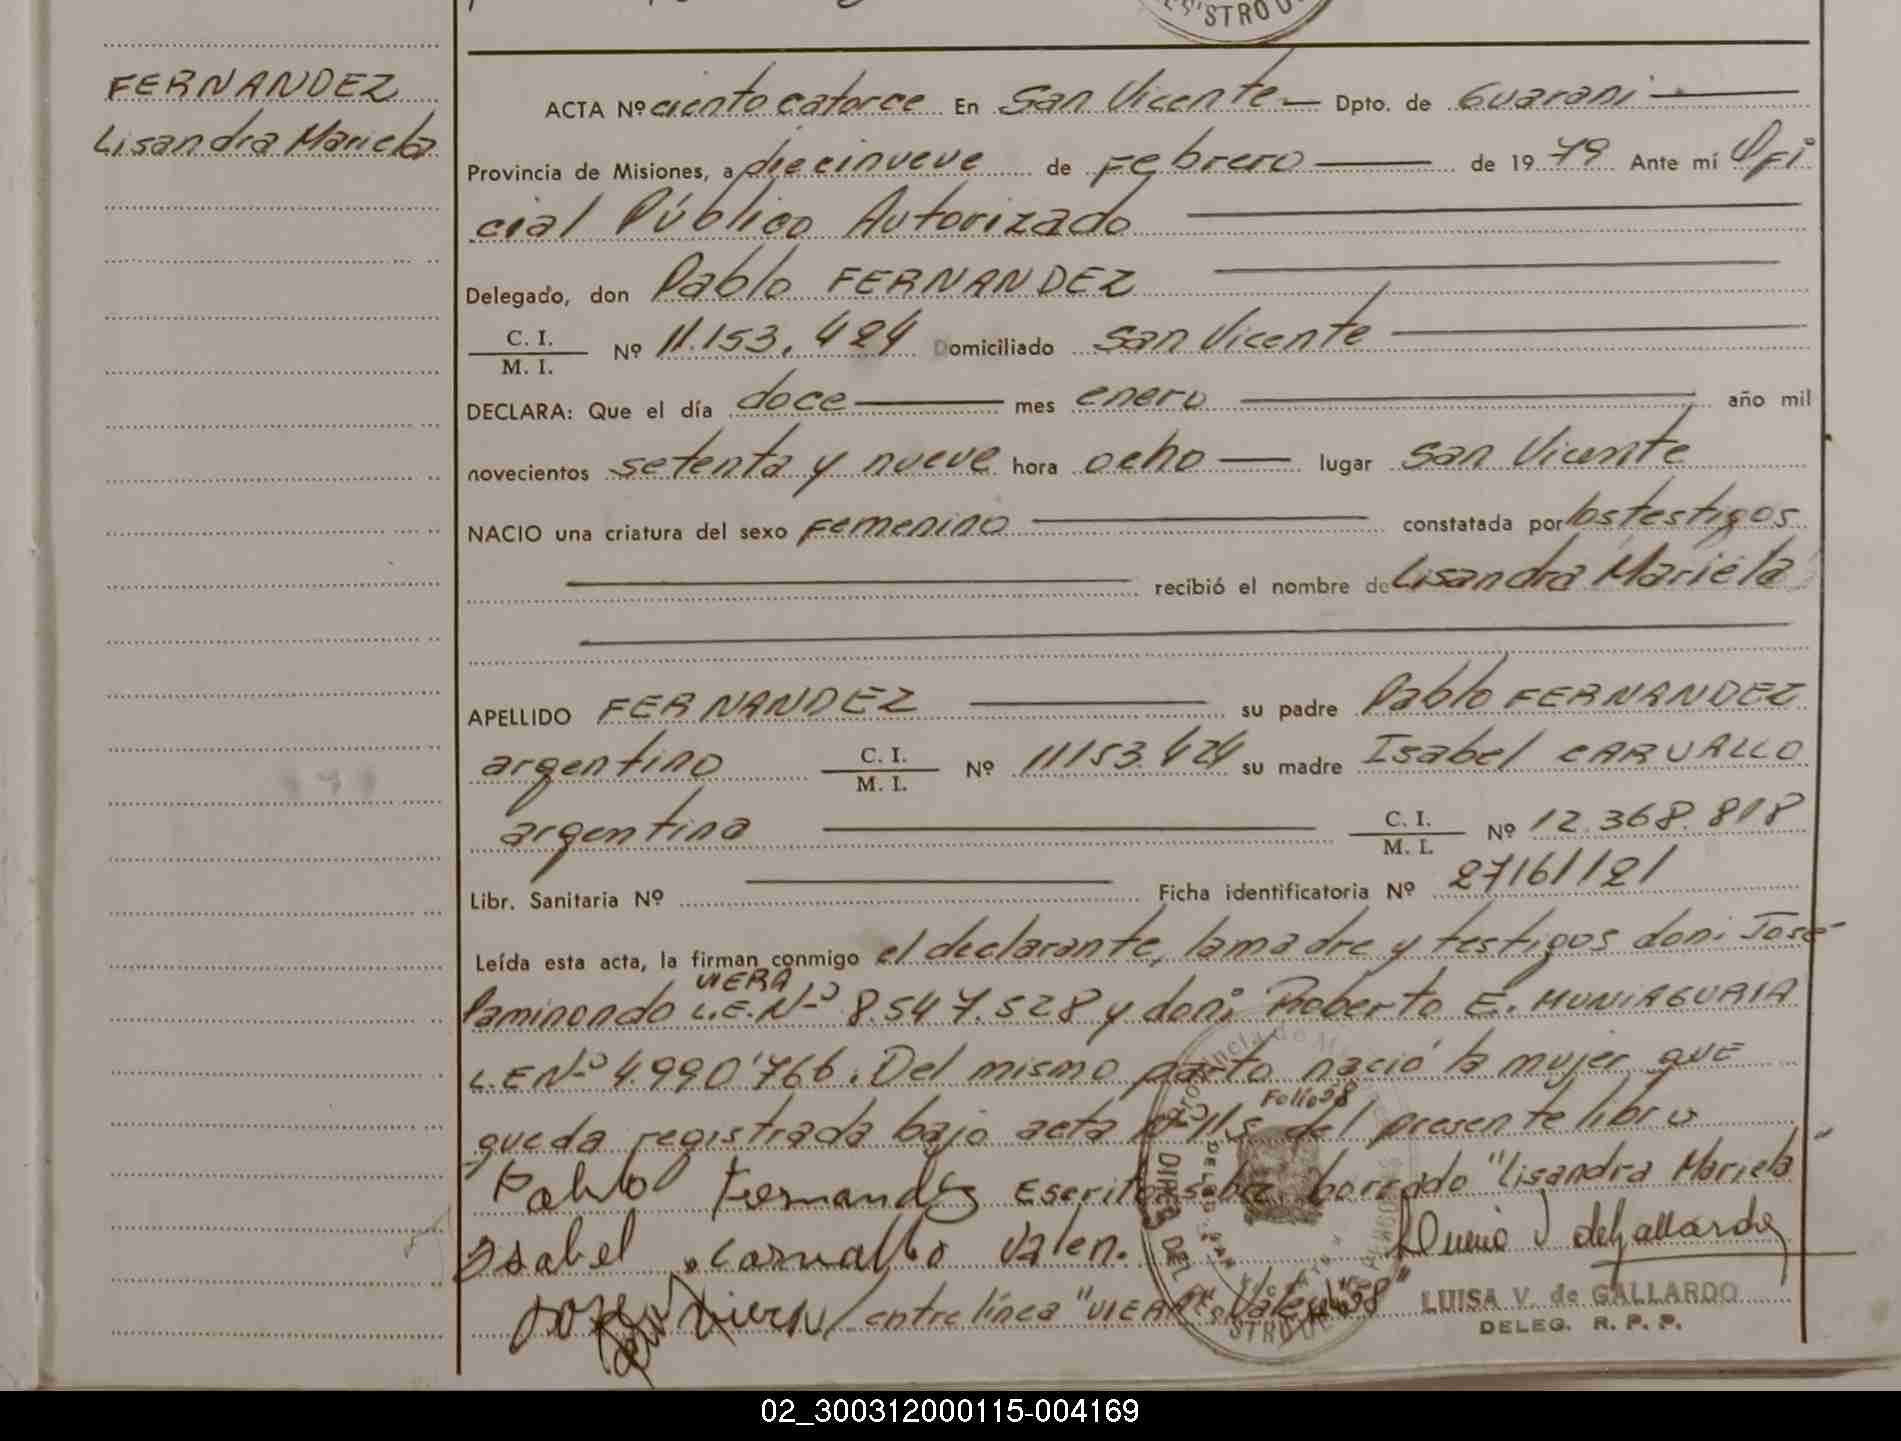 FERNANDEZ
Lisandra Mariela
ACTA Nº ciento catorce En San Vicente Dpto. de Guarani
Provincia de Misiones, a diecinueve de Febrero de 19 79 Ante mí Ofi
cial Público Autorizado
Delegado, don Pablo FERNANDEZ
C. I.
M. I.
Nº 11.153.424 Domiciliado San Vicente
DECLARA: Que el día doce mes enero año mil
novecientos setenta y nueve hora ocho lugar San Vicente
NACIO una criatura del sexo Femenino constatada por los testigos
recibió el nombre de Lisandra Mariela
APELLIDO FERNANDEZ su padre Pablo FERNANDEZ
argentino C. I. M. I. Nº 11153.424 su madre Isabel CARVALLO
argentina C. I. M. I. Nº 12.368.818
Libr. Sanitaria Nº Ficha identificatoria Nº 27161121
Leída esta acta, la firman conmigo el declarante, la madre y testigos don: José
VIERA
Paminondo L.E.Nº 8.547.528 y don: Roberto E. MUNIAGURIA
L.E Nº 4.990.766. Del mismo parto nació la mujer que
Folio 38
queda registrada bajo acta Nº 115 del presente libro
Pablo Fernandez Escrito sobre borrado "Lisandra Mariela"
Isabel Carvallo Valen.
entre línea "VIERA"
LUISA V. de GALLARDO
DELEG. R. P. P.
02_300312000115-004169